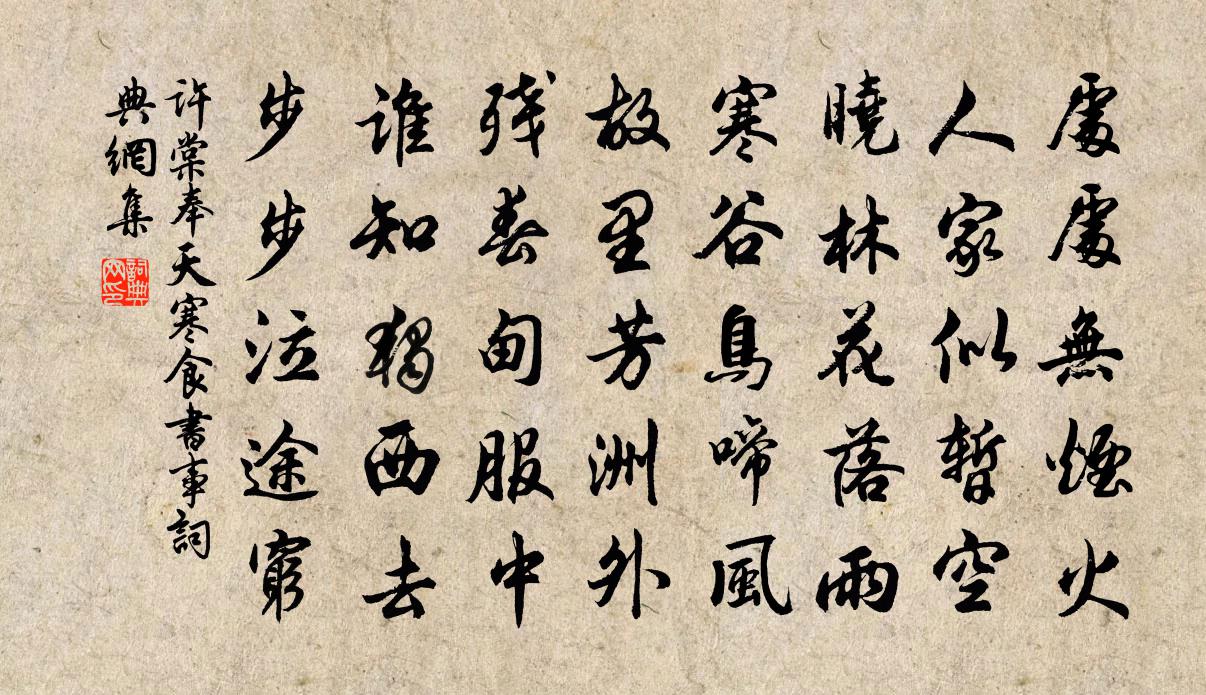 處處無煙火
人家似暫空
曉林花落雨
寒谷鳥啼風
故里芳洲外
残春甸服中
誰知獨西去
步步泣途窮
許棠奉天寒食書事詞
典網集
詞典網印